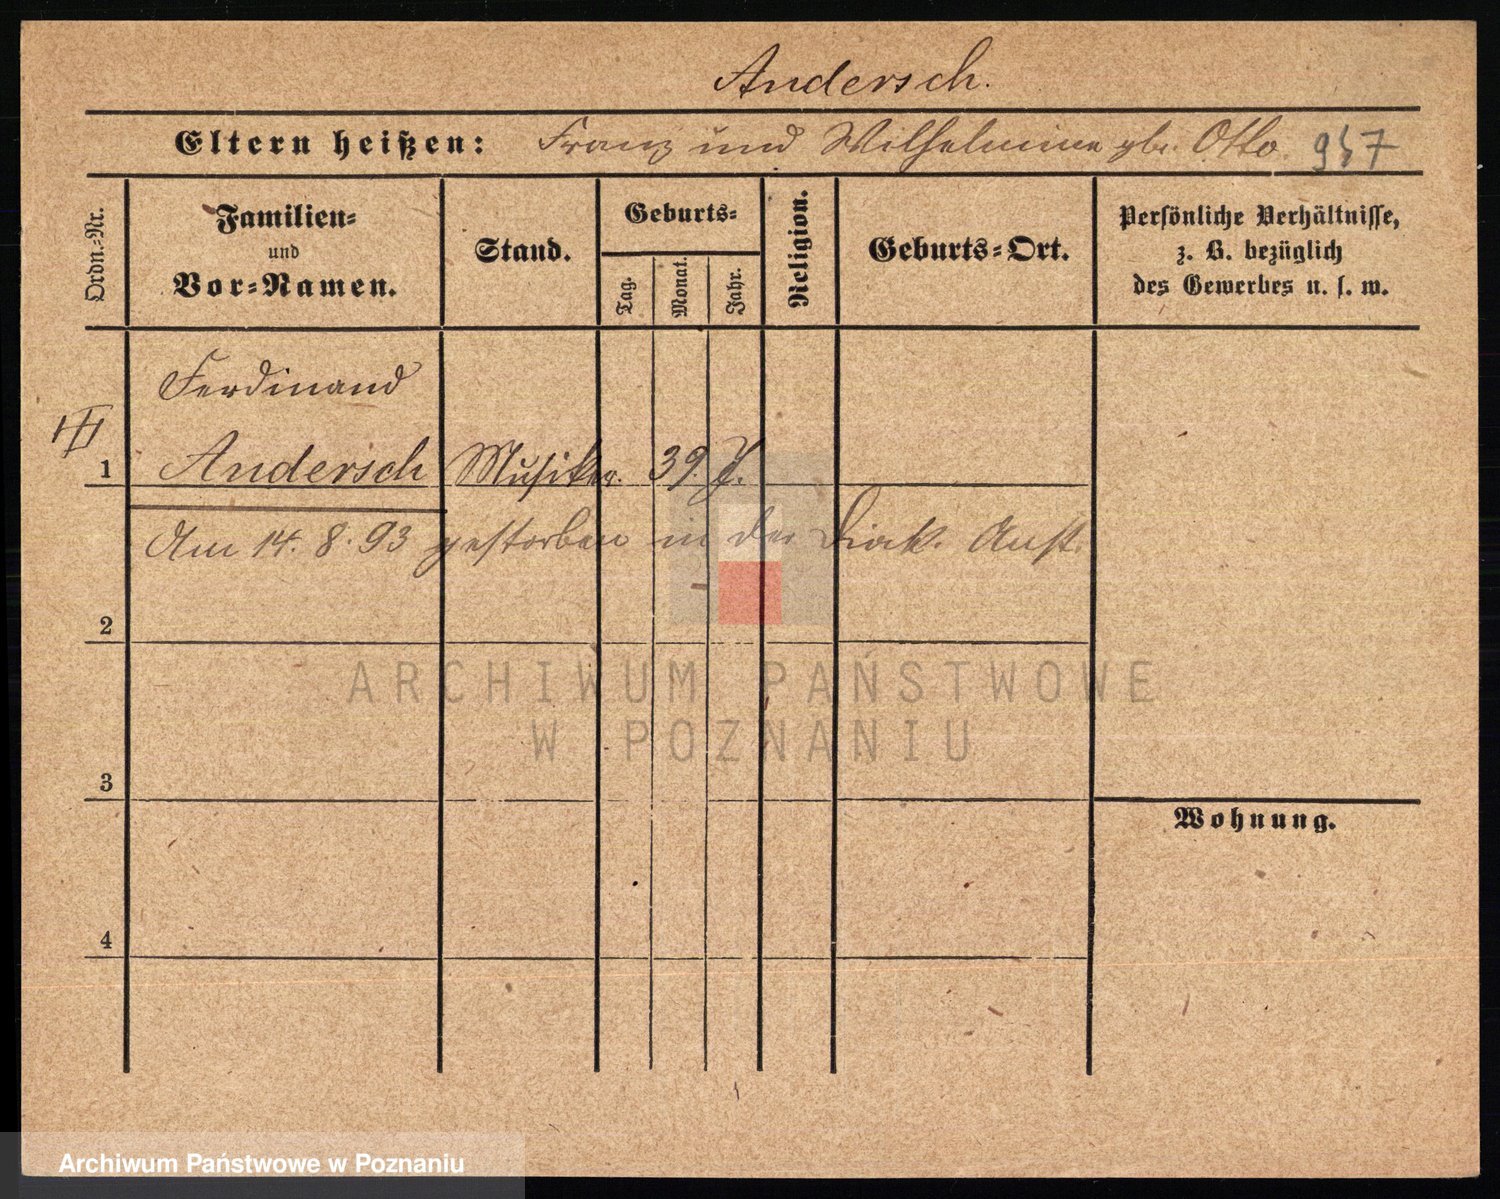 Andersch.
Eltern heißen: Franz und Wilhelmine gb. Otto 957
Ordn.-Nr.
Familien- und Vor-Namen.
Stand.
Geburts-
Tag.
Monat.
Jahr.
Religion.
Geburts-Ort.
Persönliche Verhältnisse,
z. B. bezüglich
des Gewerbes u. s. w.
Ferdinand
III
1 Andersch Musiker. 39. J.
Am 14. 8. 93 gestorben in der Diak. Anst.
2
ARCHIWUM PAŃSTWOWE
W POZNANIU
3
Wohnung.
4
Archiwum Państwowe w Poznaniu